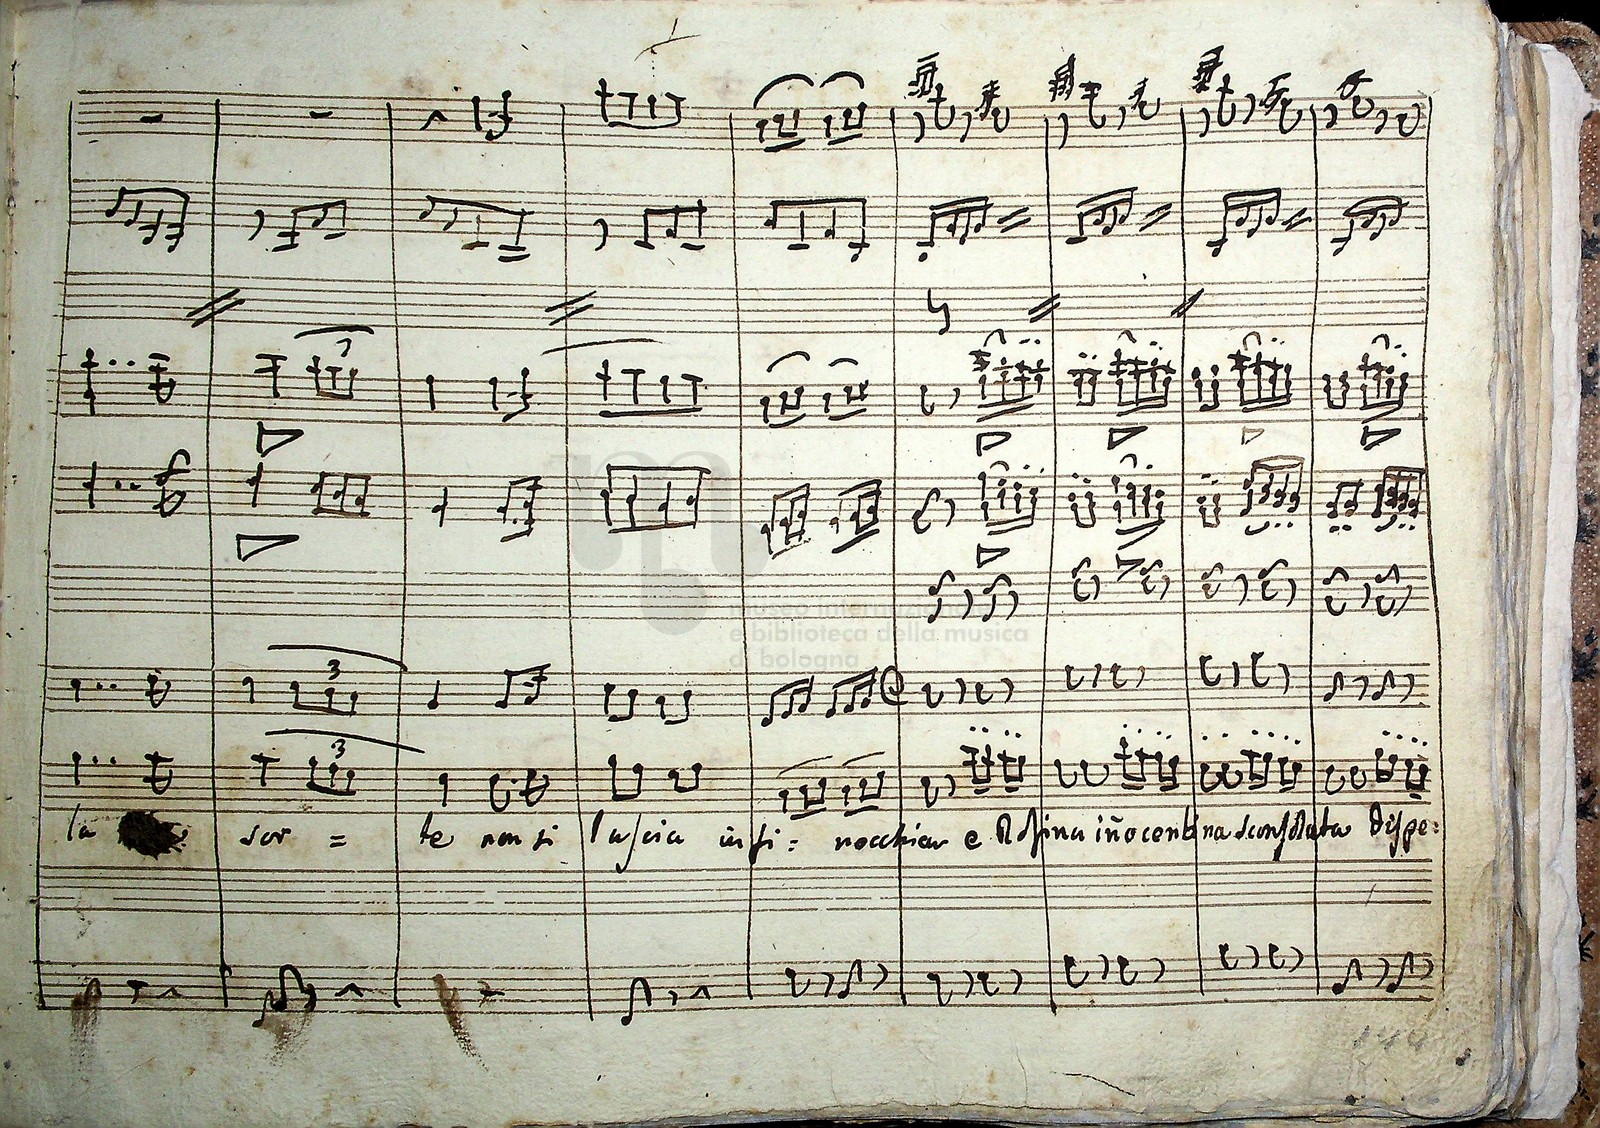 museo internazionale
e biblioteca della musica
di bologna
3
3
3
la sor = te non si lascia infi = nocchiar e Rosina iñocentina sconsolata dispe:
144